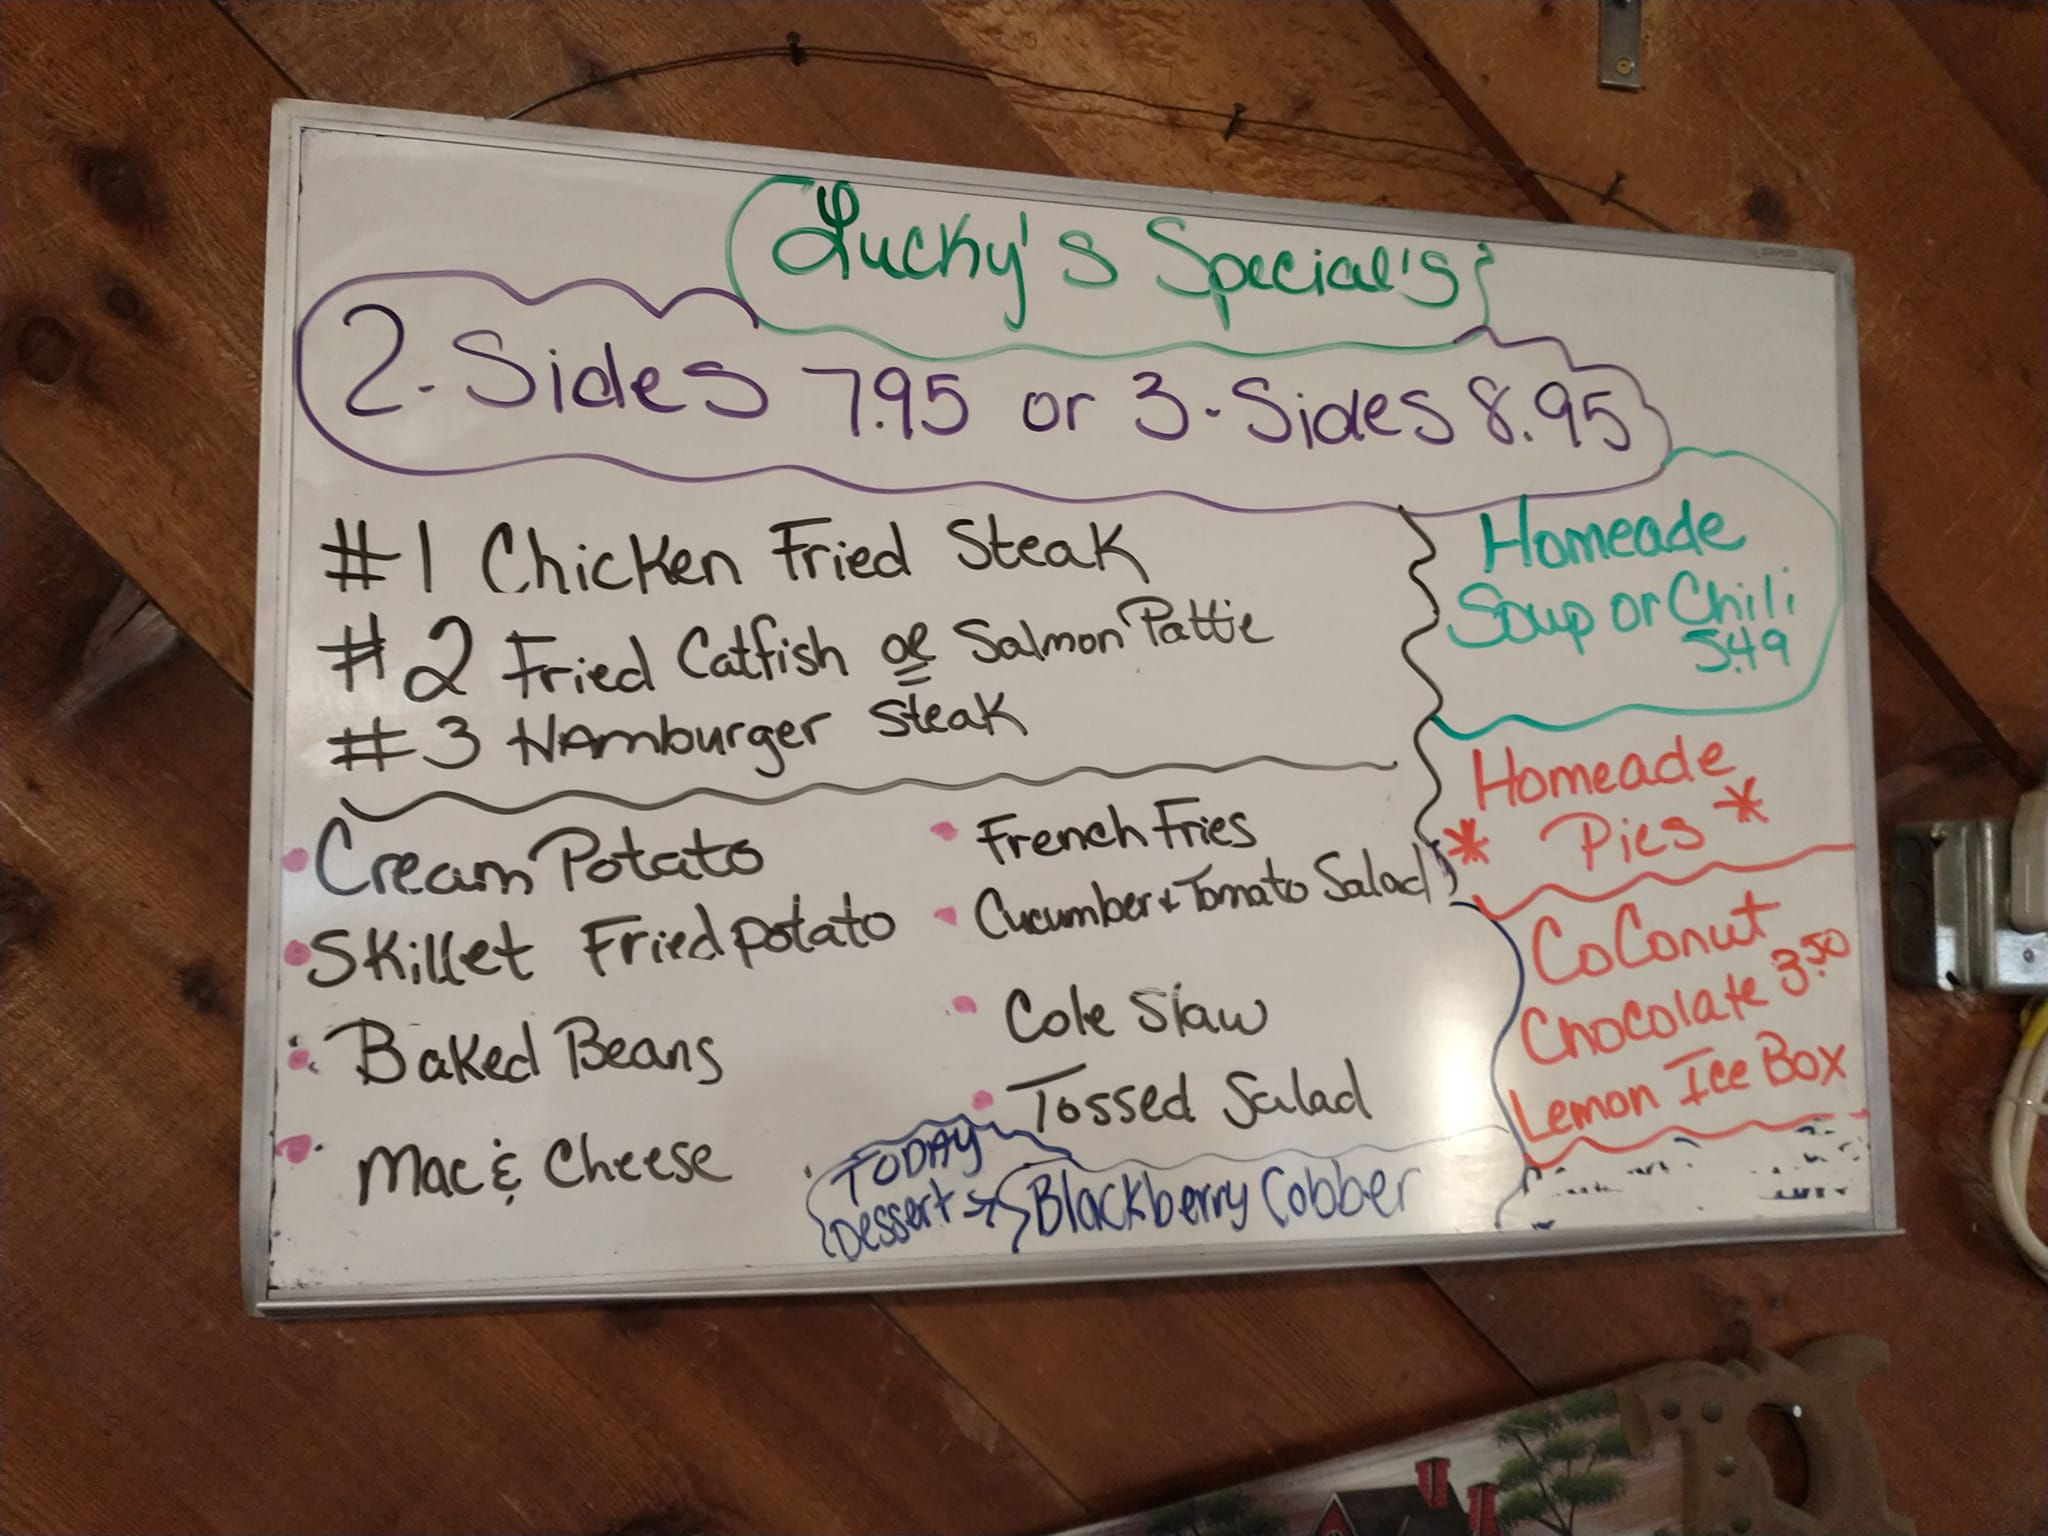 Lucky's Special's
2-Sides 7.95 or 3-Sides 8.95
#1 Chicken Fried Steak
#2 Fried Catfish or Salmon Pattie
#3 Hamburger Steak
Homeade
Soup or Chili
5.49
Homeade
* Pies *
CoConut
Chocolate 3.50
Lemon Ice Box
• Cream Potato
• Skillet Fried potato
• Baked Beans
• Mac & Cheese
• French Fries
• Cucumber & Tomato Salad
• Cole Slaw
• Tossed Salad
TODAY
Dessert → Blackberry Cobber